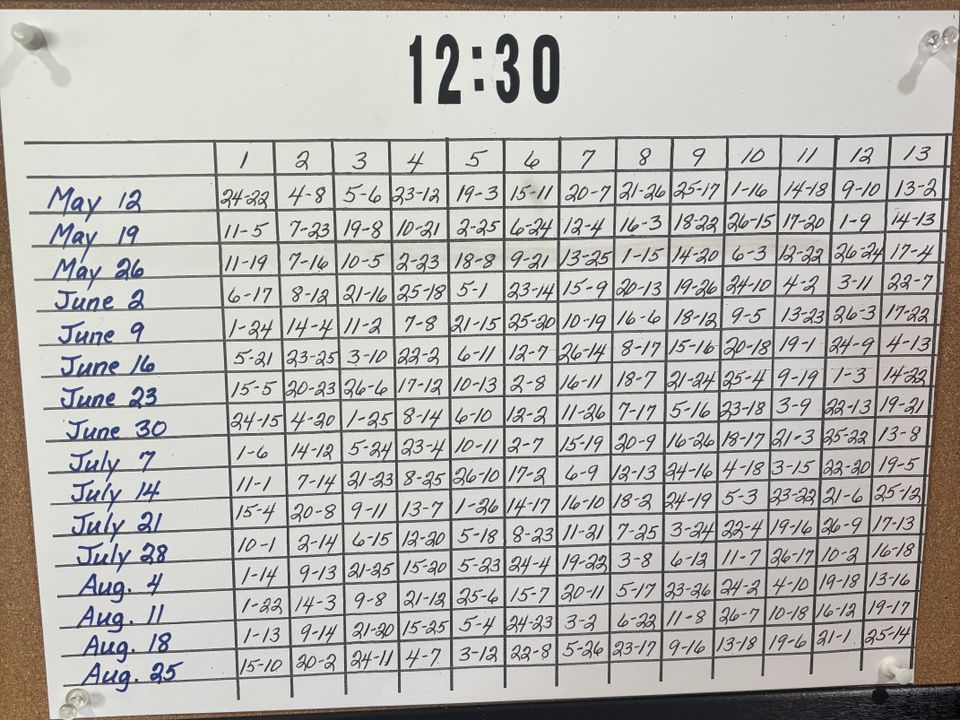 12:30
1 2 3 4 5 6 7 8 9 10 11 12 13
May 12 24-22 4-8 5-6 23-12 19-3 15-11 20-7 21-26 25-17 1-16 14-18 9-10 13-2
May 19 11-5 7-23 19-8 10-21 2-25 6-24 12-4 16-3 18-22 26-15 17-20 1-9 14-13
May 26 11-19 7-16 10-5 2-23 18-8 9-21 13-25 1-15 14-20 6-3 12-22 26-24 17-4
June 2 6-17 8-12 21-16 25-18 5-1 23-14 15-9 20-13 19-26 24-10 4-2 3-11 22-7
June 9 1-24 14-4 11-2 7-8 21-15 25-20 10-19 16-6 18-12 9-5 13-23 26-3 17-22
June 16 5-21 23-25 3-10 22-2 6-11 12-7 26-14 8-17 15-16 20-18 19-1 24-9 4-13
June 23 15-5 20-23 26-6 17-12 10-13 2-8 16-11 18-7 21-24 25-4 9-19 1-3 14-22
June 30 24-15 4-20 1-25 8-14 6-10 12-2 11-26 7-17 5-16 23-18 3-9 22-13 19-21
July 7 1-6 14-12 5-24 23-4 10-11 2-7 15-19 20-9 16-26 18-17 21-3 25-22 13-8
July 14 11-1 7-14 21-23 8-25 26-10 17-2 6-9 12-13 24-16 4-18 3-15 22-20 19-5
July 21 15-4 20-8 9-11 13-7 1-26 14-17 16-10 18-2 24-19 5-3 23-22 21-6 25-12
July 28 10-1 2-14 6-15 12-20 5-18 8-23 11-21 7-25 3-24 22-4 19-16 26-9 17-13
Aug. 4 1-14 9-13 21-25 15-20 5-23 24-4 19-22 3-8 6-12 11-7 26-17 10-2 16-18
Aug. 11 1-22 14-3 9-8 21-12 25-6 15-7 20-11 5-17 23-26 24-2 4-10 19-18 13-16
Aug. 18 1-13 9-14 21-20 15-25 5-4 24-23 3-2 6-22 11-8 26-7 10-18 16-12 19-17
Aug. 25 15-10 20-2 24-11 4-7 3-12 22-8 5-26 23-17 9-16 13-18 19-6 21-1 25-14